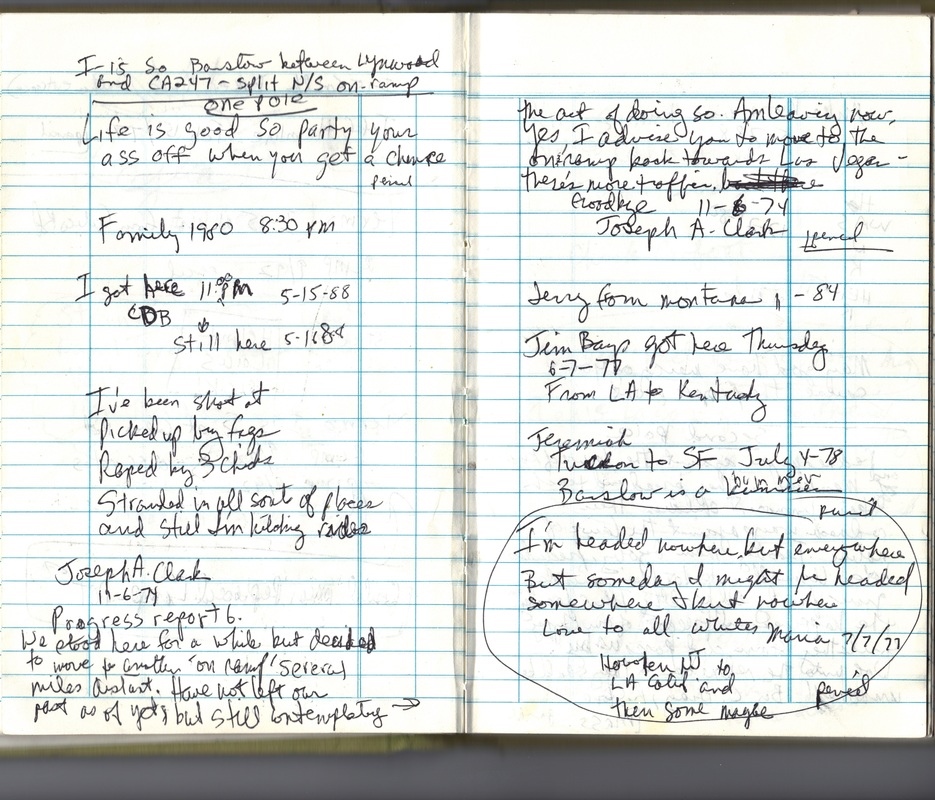 I-15 So Barstow between Lynwood
and CA247 - split N/S on-ramp
one pole
Life is good so party your
ass off when you get a chance
pencil
Family 1980 8:30 pm
I got here 11: PM 5-15-88
CDB
still here 5-16-88
I've been shot at
Picked up by fags
Raped by 3 chicks
Stranded in all sorts of places
and still I'm kicking
Joseph A. Clark
11-6-74
Progress report 6.
We stood here for a while but decided
to move to another 'on ramp' several
miles distant. Have not left our
post as of yet, but still contemplating →
the act of doing so. Am leaving now,
Yes, I advise you to move to the
on, ramp back towards Las Vegas -
there's more traffic.
Goodbye 11-6-74
Joseph A. Clark pencil
Jerry from montana 11-84
Jim Bays got here Thursday
6-7-77
From LA to Kentucky
Jeremiah
Tucson to SF July 4-78
Barstow is a bummer
pencil
I'm headed nowhere, but everywhere
But someday I might be headed
somewhere but nowhere
Love to all Maria 7/7/77
NJ to
LA Calif and
then some maybe pencil